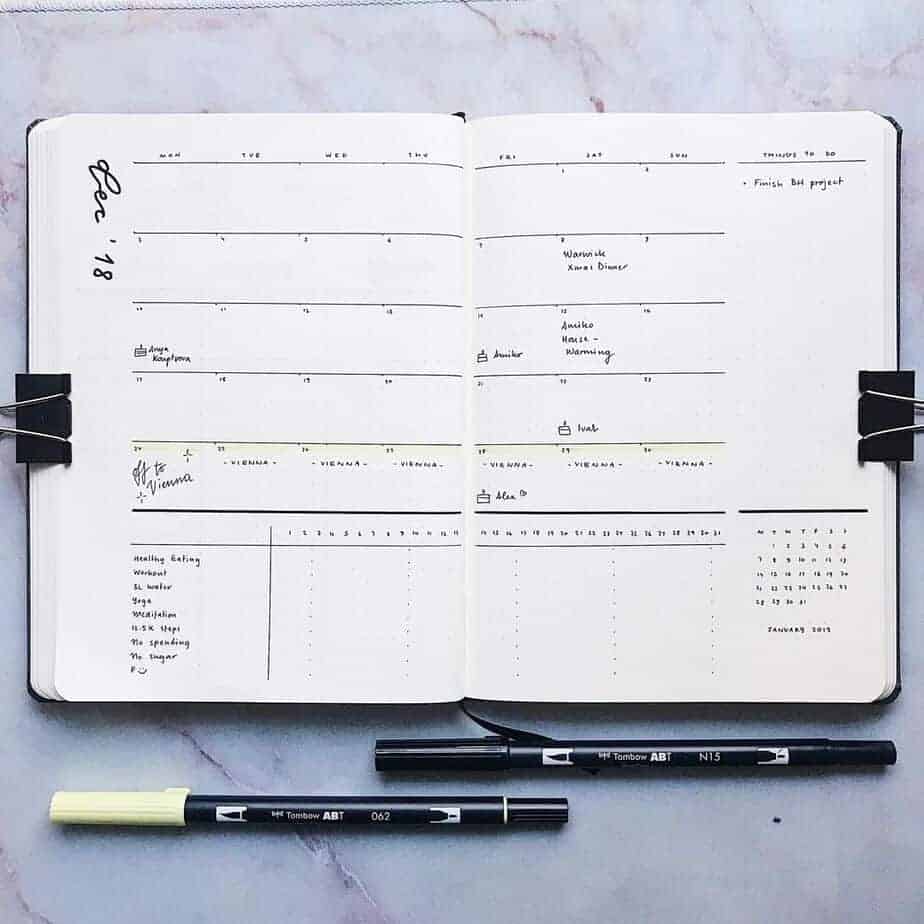 Dec '18
MON TUE WED THU FRI SAT SUN THINGS TO DO
1 2
• Finish BH project
3 4 5 6 7 8 9
Warwick
Xmas Dinner
10 11 12 13 14 15 16
Amiko
House -
Warming
Anya
Amiko
17 18 19 20 21 22 23
Ivat
24 25 26 27 28 29 30
off to
Vienna
- VIENNA - - VIENNA - - VIENNA - - VIENNA - - VIENNA - - VIENNA -
Alex
1 2 3 4 5 6 7 8 9 10 11 12 13 14 15 16 17 18 19 20 21 22 23 24 25 26 27 28 29 30 31
Healthy Eating
Workout
3L water
Yoga
Meditation
12.5K steps
No spending
No sugar
P
M T W T F S S
1 2 3 4 5 6
7 8 9 10 11 12 13
14 15 16 17 18 19 20
21 22 23 24 25 26 27
28 29 30 31
JANUARY 2019
Tombow ABT N15
Tombow ABT 062